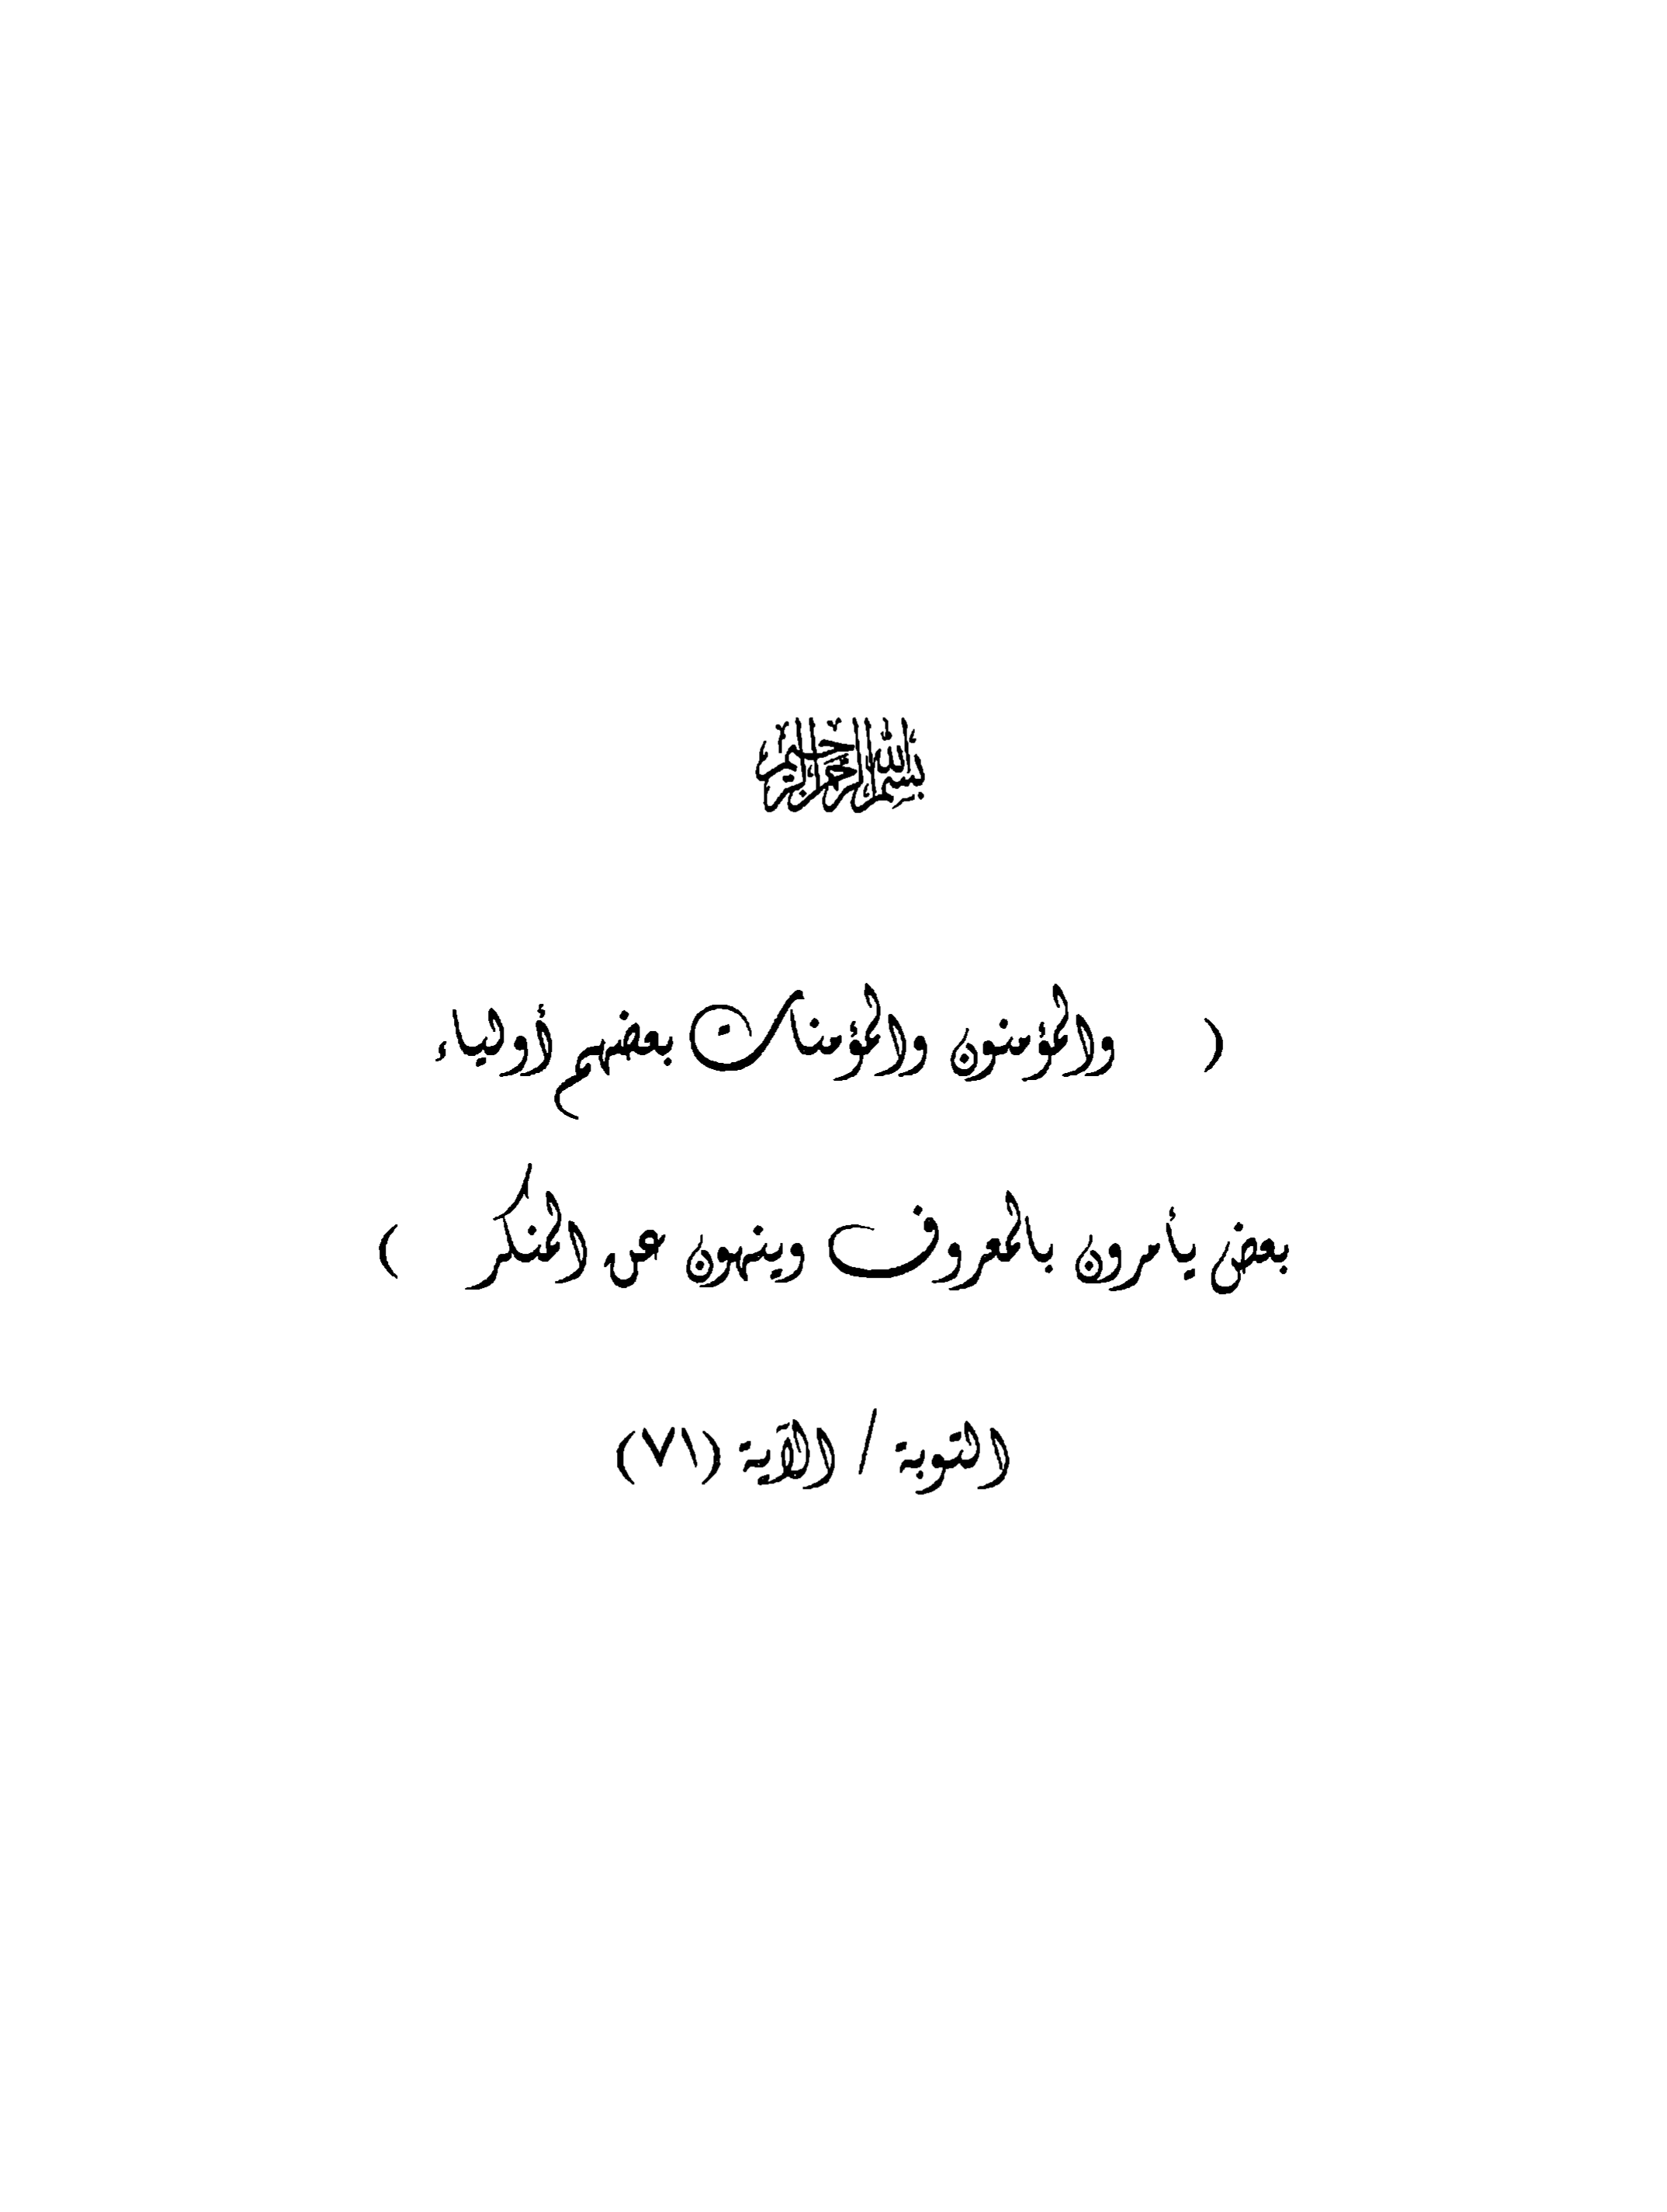 بسم الله الرحمن الرحيم
( والمؤمنون والمؤمنات بعضهم أولياء
بعض يأمرون بالمعروف وينهون عن المنكر )
التوبة / الآية (٧١)